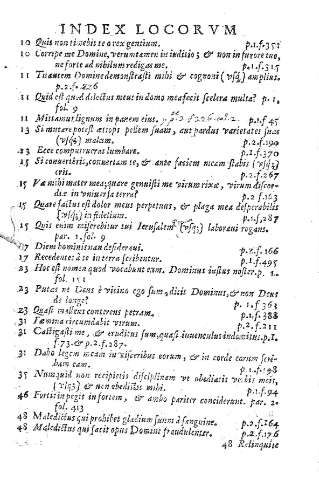 INDEX LOCORVM
10 Quis non timebis te o rex gentium. p.1.f.352
10 Corripe me Domine, verumtamen in iuditio; & non in furore tuo,
ne forte ad nihilum redigas me. p.1.f.315
11 Tu autem Domine demonstrasti mihi & cognoui (vsq;) amplius.
p.2.f.426
11 Quid est quod dilectus meus in domo mea fecit scelera multa? p. 1.
fol. 9
11 Mittamus lignum in panem eius. p.1.f 45
13 Si mutare potest æthiops pellem suam, aut pardus varietates suas
(vsq;) malum. p.2.f.190
23 Ecce computruerat lumbare. p.2.f.370
15 Si conuerteris, conuertam te, & ante faciem meam stabis (vsq;)
eris. p.2.f.267
15 Væ mihi mater mea; quare genuisti me virum rixæ, virum discor-
diæ in vniuersa terra? p.2 f.163
15 Quare factus est dolor meus perpetuus, & plaga mea desperabilis
(vsq;) infidelium. p.1.f.287
15 Quis enim miserebitur tui Ierusalem (vsq;) laboraui rogans.
par. 1. fol. 9
17 Diem hominis non desideraui. p.2.f.166
17 Recedentes à te in terra scribentur. p.1.f.495
23 Hoc est nomen quod vocabunt eum, Dominus iustus noster. p. 1.
fol. 151
23 Putas ne Deus è vicino ego sum, dicit Dominus, & non Deus
de longe? p. 1.f.363
23 Quasi malleus conterens petram. p.1.f.388
31 Fæmina circumdabit virum. p.2.f.211
31 Castigasti me, & eruditus sum, quasi iuuenculus indomitus. p.1.
f.73.& p.2.f.287.
31 Dabo legem meam in visceribus eorum, & in corde eorum scri-
bam eam. p.1.f.198
35 Nunquid non recipietis disciplinam vt obediatis verbis meis,
(vsq;) & non obedistis mihi. p.1.f.94
46 Fortis impegit in fortem, & ambo pariter conciderunt. par. 2.
fol. 413
48 Maledictus qui prohibet gladium suum à sanguine. p.2.f.264
48 Maledictus qui facit opus Domini fraudulenter. p.2.f.176
48 Relinquite